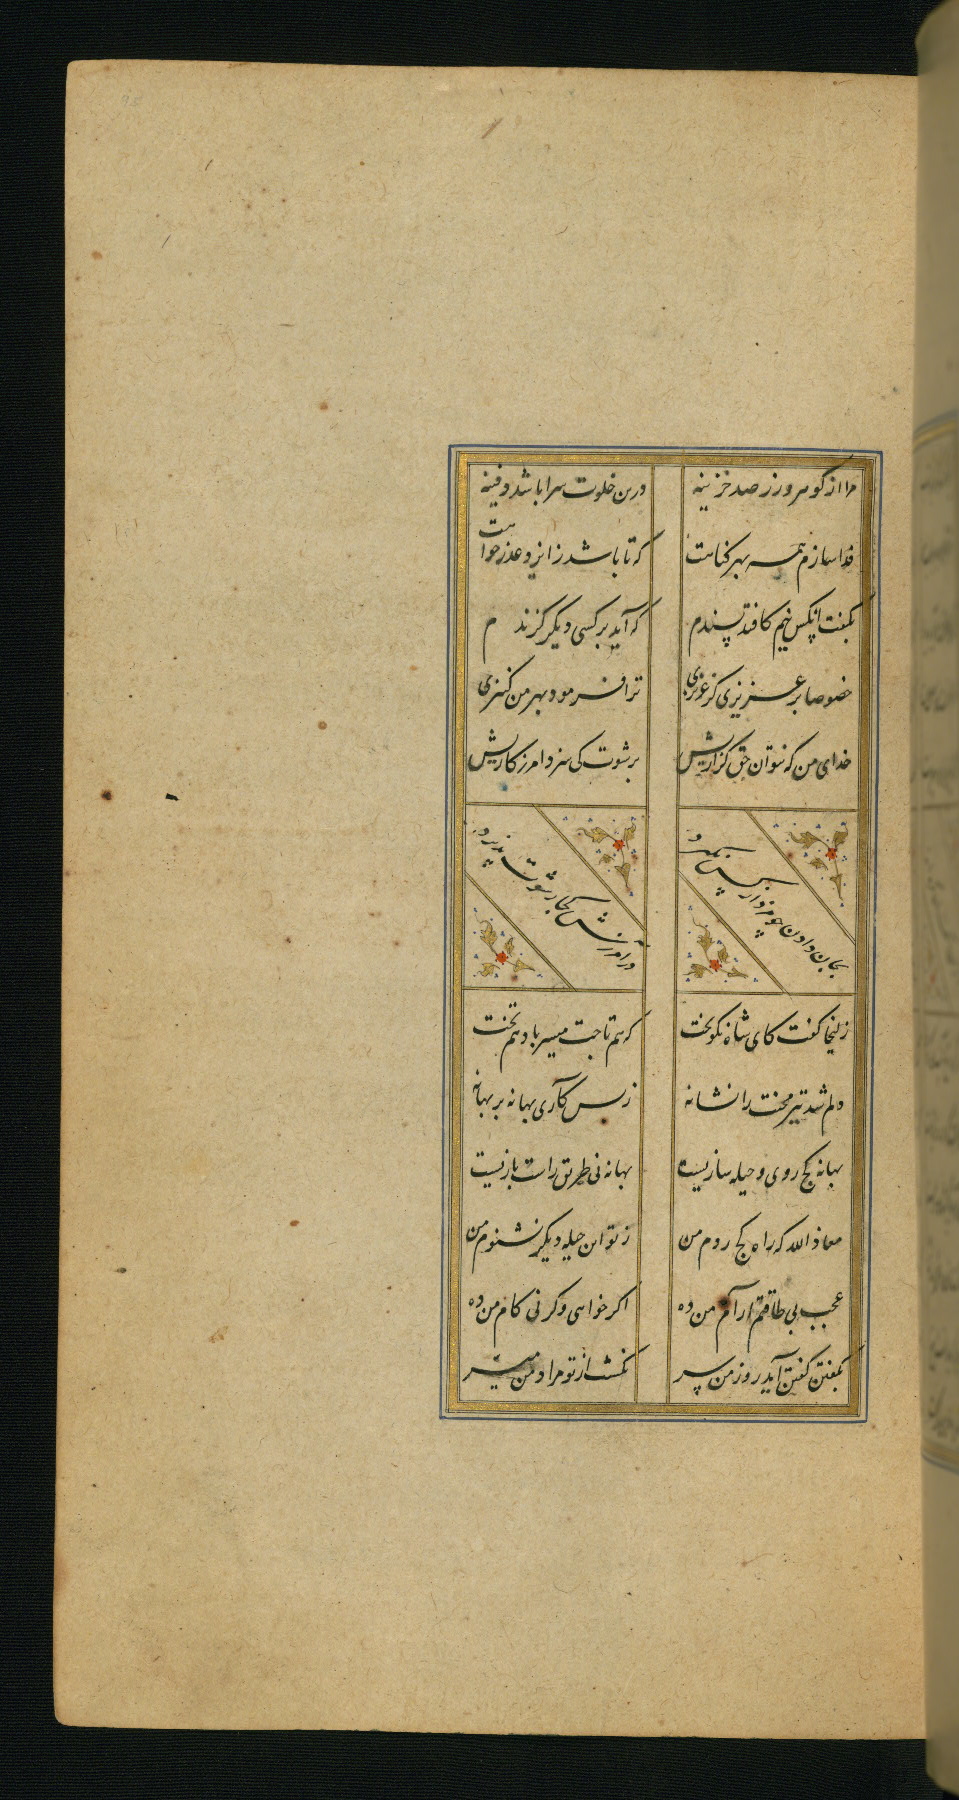 مرا از گوهر و زر صد خزینه درین خلوت سرا باشد دفینه
فدا سازم همه بهر گناهت که تا باشد ز ایزد عذر خواهت
بگفت آنکس نیم کافتد پسندم که آید بر کسی دیگر گزندم
خصوصا بر عزیزی کز عزیزی ترا فرمود بهر من کنیزی
خدای من که نتوان حق گزاریش برشوت کی سزد امرزگاریش
بجان دادن چو مزد از کس نگیرد در آمرزش کجا رشوت پذیرد
زلیخا گفت کای شاه نکوبخت که هم تاجت میسر باد هم تخت
دلم شد تیر محنت را نشانه ز بس کآری بهانه بر بهانه
بهانه کج روی و حیله سازیست بهانه نی طریق راست بازیست
معاذ الله که راه کج روم من ز تو این حیله دیگر نشنوم من
عجب بی طاقتم آرام من ده اگر خواهی و گر نی کام من ده
بگفتن گفتن آید روز من بسر نگشت از تو مراد من میسر